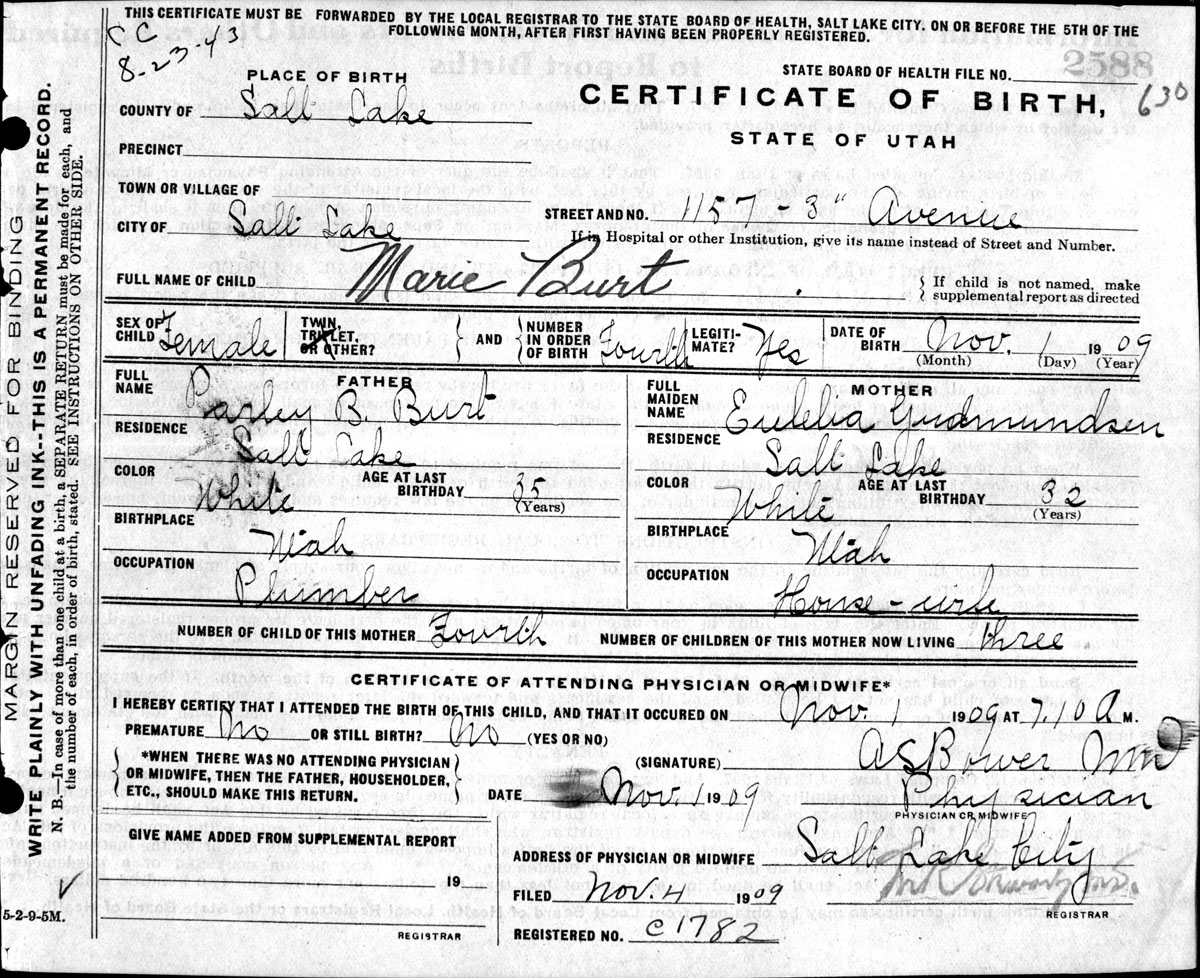 THIS CERTIFICATE MUST BE FORWARDED BY THE LOCAL REGISTRAR TO THE STATE BOARD OF HEALTH, SALT LAKE CITY, ON OR BEFORE THE 5TH OF THE
FOLLOWING MONTH, AFTER FIRST HAVING BEEN PROPERLY REGISTERED.
C C
8-23-43
PLACE OF BIRTH
STATE BOARD OF HEALTH FILE NO.
2588
CERTIFICATE OF BIRTH,
630
COUNTY OF Salt Lake
STATE OF UTAH
PRECINCT
TOWN OR VILLAGE OF
CITY OF Salt Lake
STREET AND NO. 1157 - 3" Avenue
If in Hospital or other Institution, give its name instead of Street and Number.
FULL NAME OF CHILD Marie Burt
If child is not named, make
supplemental report as directed
SEX OF CHILD Female
TWIN, TRIPLET, OR OTHER?
AND
NUMBER IN ORDER OF BIRTH Fourth
LEGITIMATE? Yes
DATE OF BIRTH Nov. 1 1909
(Month) (Day) (Year)
FATHER
FULL NAME Parley B. Burt
RESIDENCE Salt Lake
COLOR White
AGE AT LAST BIRTHDAY 35
(Years)
BIRTHPLACE Utah
OCCUPATION Plumber
MOTHER
FULL MAIDEN NAME Eulelia Gudmundsen
RESIDENCE Salt Lake
COLOR White
AGE AT LAST BIRTHDAY 32
(Years)
BIRTHPLACE Utah
OCCUPATION House-wife
NUMBER OF CHILD OF THIS MOTHER Fourth
NUMBER OF CHILDREN OF THIS MOTHER NOW LIVING three
CERTIFICATE OF ATTENDING PHYSICIAN OR MIDWIFE*
I HEREBY CERTIFY THAT I ATTENDED THE BIRTH OF THIS CHILD, AND THAT IT OCCURED ON Nov. 1 1909 AT 7.10 A M.
PREMATURE No OR STILL BIRTH? No (YES OR NO)
*WHEN THERE WAS NO ATTENDING PHYSICIAN
OR MIDWIFE, THEN THE FATHER, HOUSEHOLDER,
ETC., SHOULD MAKE THIS RETURN.
(SIGNATURE) A S Bower
DATE Nov. 1 1909
Physician
PHYSICIAN OR MIDWIFE
GIVE NAME ADDED FROM SUPPLEMENTAL REPORT
19
REGISTRAR
ADDRESS OF PHYSICIAN OR MIDWIFE Salt Lake City
FILED Nov. 4 1909
REGISTRAR
REGISTERED NO. c 1782
5-2-9-5M.
MARGIN RESERVED FOR BINDING
WRITE PLAINLY WITH UNFADING INK--THIS IS A PERMANENT RECORD.
N. B.—In case of more than one child at a birth, a SEPARATE RETURN must be made for each, and
the number of each, in order of birth, stated. SEE INSTRUCTIONS ON OTHER SIDE.